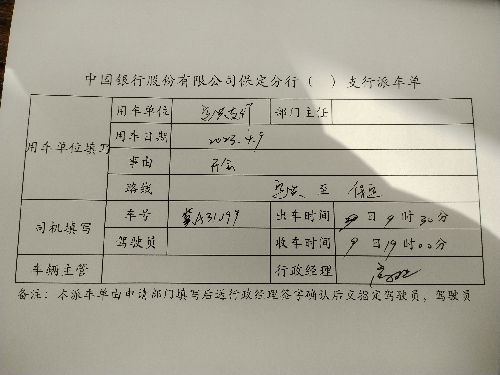 中国银行股份有限公司保定分行（ ）支行派车单
用车单位 支行 部门主任
用车单位填写 用车日期 2023.4.9
事由 开会
路线 至 保定
司机填写 车号 出车时间 9日9时30分
驾驶员 收车时间 9日19时00分
车辆主管 行政经理
备注：本派车单由申请部门填写后送行政经理签字确认后交指定驾驶员，驾驶员